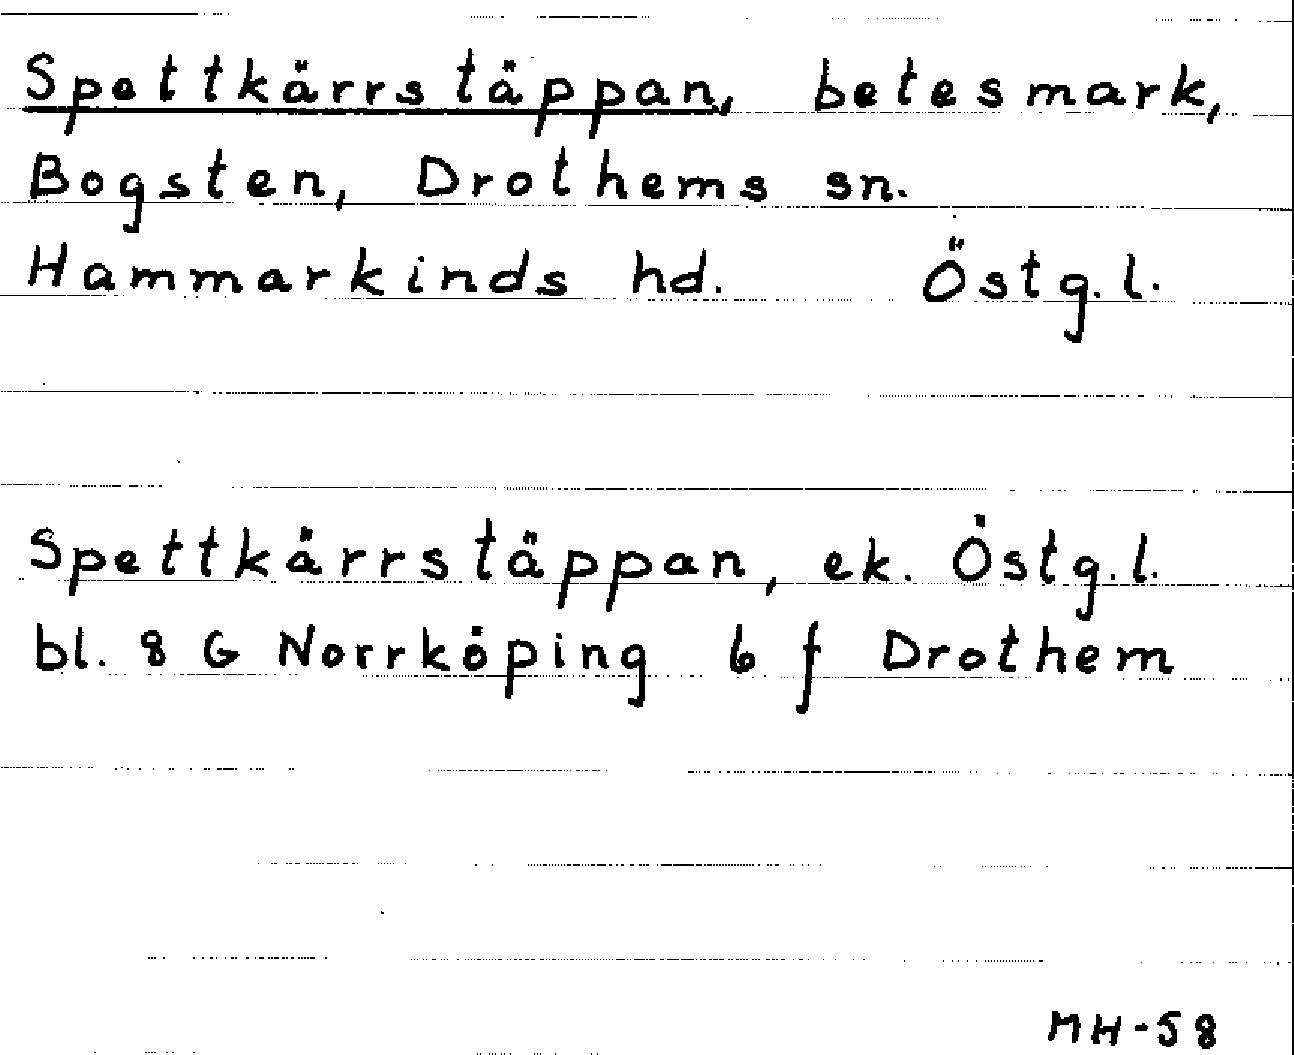 Spettkärrstäppan, betesmark,
Bogsten, Drothems sn.
Hammarkinds hd. Östg.l.
Spettkärrstäppan, ek. Östg.l.
bl. 8 G Norrköping 6 f Drothem
MH-58